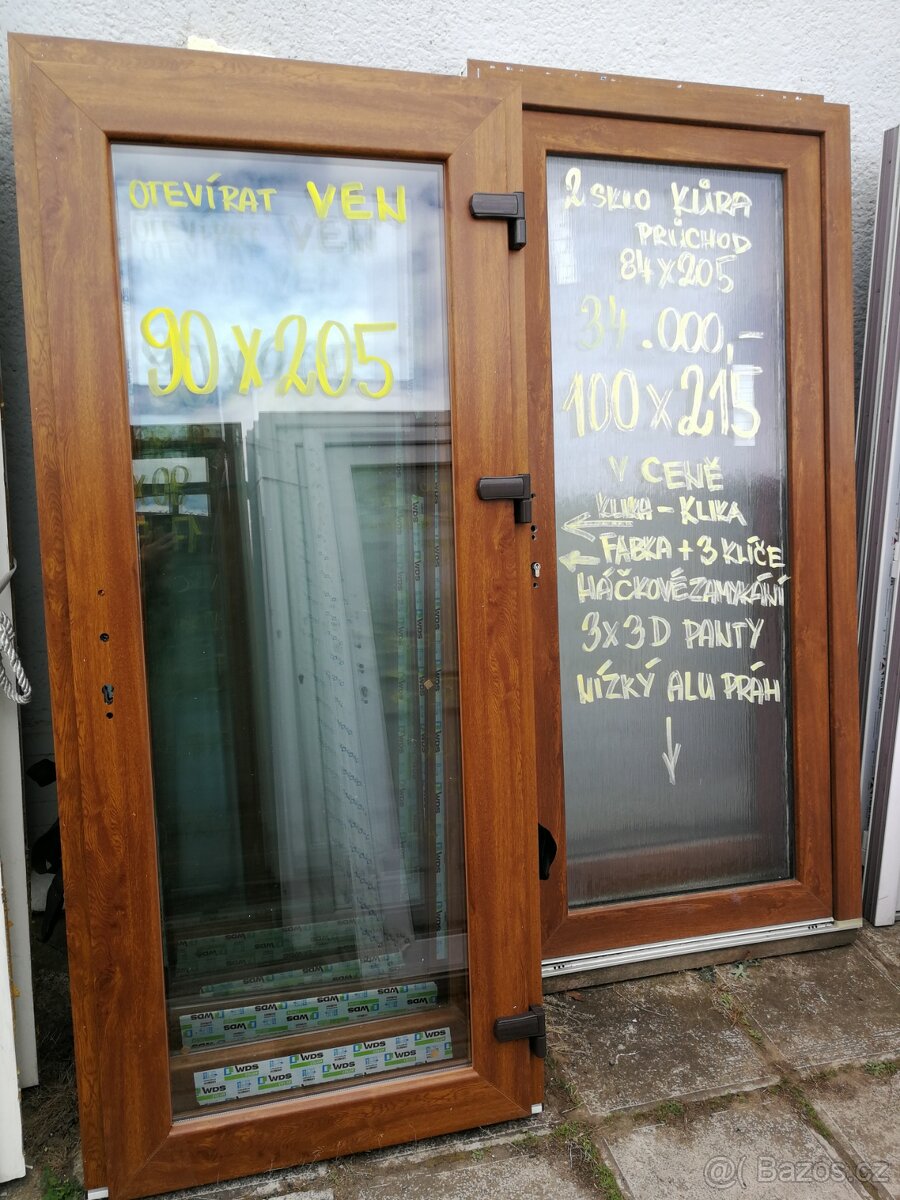 OTEVÍRAT VEN
90 x 205
2 SKLO KŮRA
PRŮCHOD
84 x 205
34.000,-
100 x 215
V CENĚ
KLIKA - KLIKA
FABKA + 3 KLÍČE
HÁČKOVÉ ZAMYKÁNÍ
3 x 3D PANTY
NÍZKÝ ALU PRÁH
WDS WDS WDS WDS
WDS WDS WDS WDS
WDS
@( Bazoš.cz